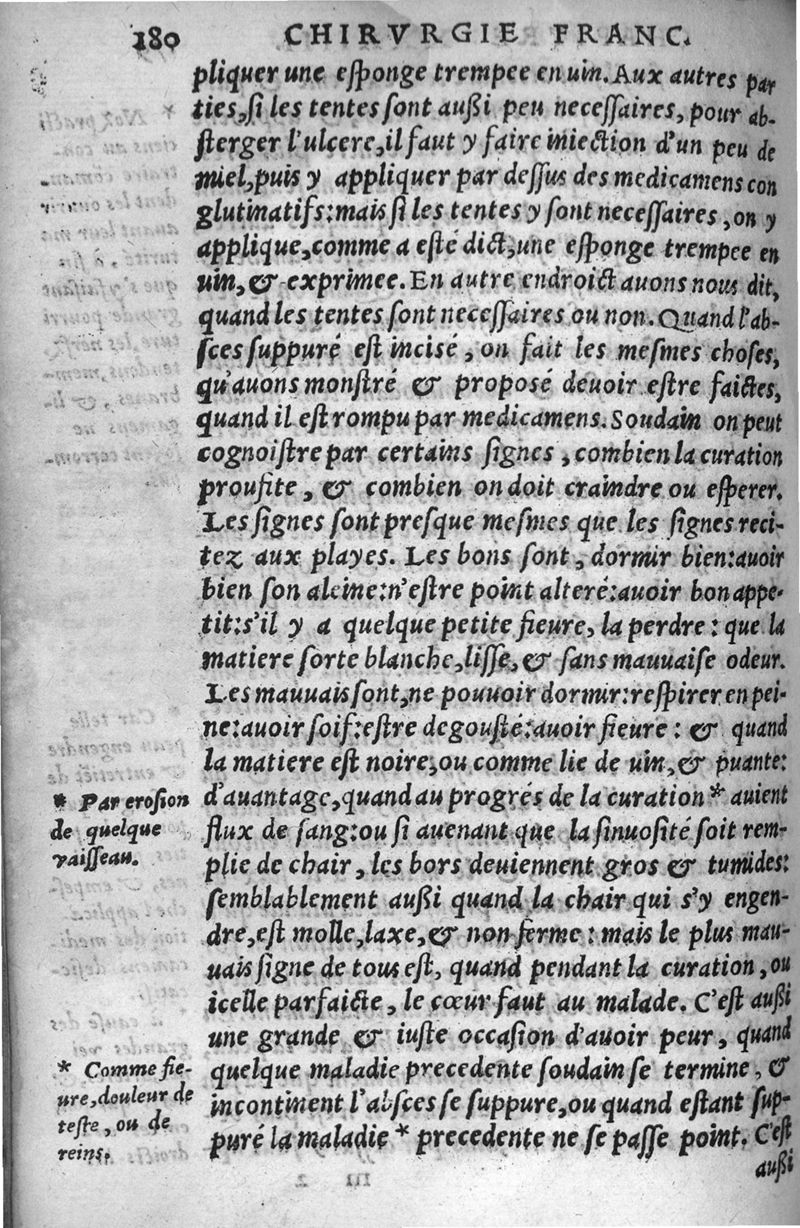 180 CHIRVRGIE FRANC.
pliquer une esponge trempee en uin. Aux autres par
ties, si les tentes sont außi peu necessaires, pour ab-
sterger l'ulcere, il faut y faire iniection d'un peu de
miel, puis y appliquer par dessus des medicamens con
glutinatifs: mais si les tentes y sont necessaires, on y
applique, comme a esté dict, une esponge trempee en
uin, & exprimee. En autre endroict auons nous dit,
quand les tentes sont necessaires ou non. Quand l'ab-
sces suppuré est incisé, on fait les mesmes choses,
qu'auons monstré & proposé deuoir estre faictes,
quand il est rompu par medicamens. Soudain on peut
cognoistre par certains signes, combien la curation
proufite, & combien on doit craindre ou esperer.
Les signes sont presque mesmes que les signes reci-
tez aux playes. Les bons sont, dormir bien: auoir
bien son aleine: n'estre point alteré: auoir bon appe-
tit: s'il y a quelque petite fieure, la perdre: que la
matiere sorte blanche, lisse, & sans mauuaise odeur.
Les mauuais sont, ne pouuoir dormir: respirer en pei-
ne: auoir soif: estre degousté: auoir fieure: & quand
la matiere est noire, ou comme lie de uin, & puante:
d'auantage, quand au progrés de la curation * auient
flux de sang: ou si auenant que la sinuosité soit rem-
plie de chair, les bors deuiennent gros & tumides:
semblablement außi quand la chair qui s'y engen-
dre, est molle, laxe, & non ferme: mais le plus mau-
uais signe de tous est, quand pendant la curation, ou
icelle parfaicte, le cœur faut au malade. C'est außi
une grande & iuste occasion d'auoir peur, quand
quelque maladie precedente soudain se termine, &
incontinent l'absces se suppure, ou quand estant sup-
puré la maladie * precedente ne se passe point. C'est
außi
* Par erosion
de quelque
vaisseau.
* Comme fie-
ure, douleur de
teste, ou de
reins.